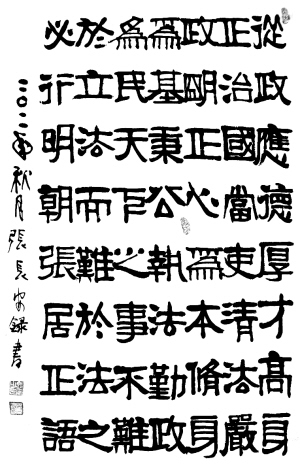 從政應德厚才高身
正治國當吏清法嚴
政明正心爲本脩身
爲基秉公執法勤政
爲民天下之事不難
於立法而難於法之
必行明朝張居正語
年秋月張長安錄書